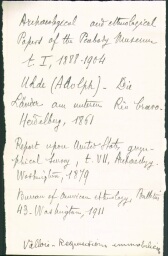 Archaeological and ethnological
Papers of the Peabody Museum
t. I, 1888-1904
Uhde (Adolph) - Die
Länder am untern Rio Bravo -
Heidelberg, 1861
Report upon United-States geogra-
phical Survey, t. VII, Archaeology.
Washington, 1879
Bureau of american ethnology, Bulletin
43. Washington, 1911